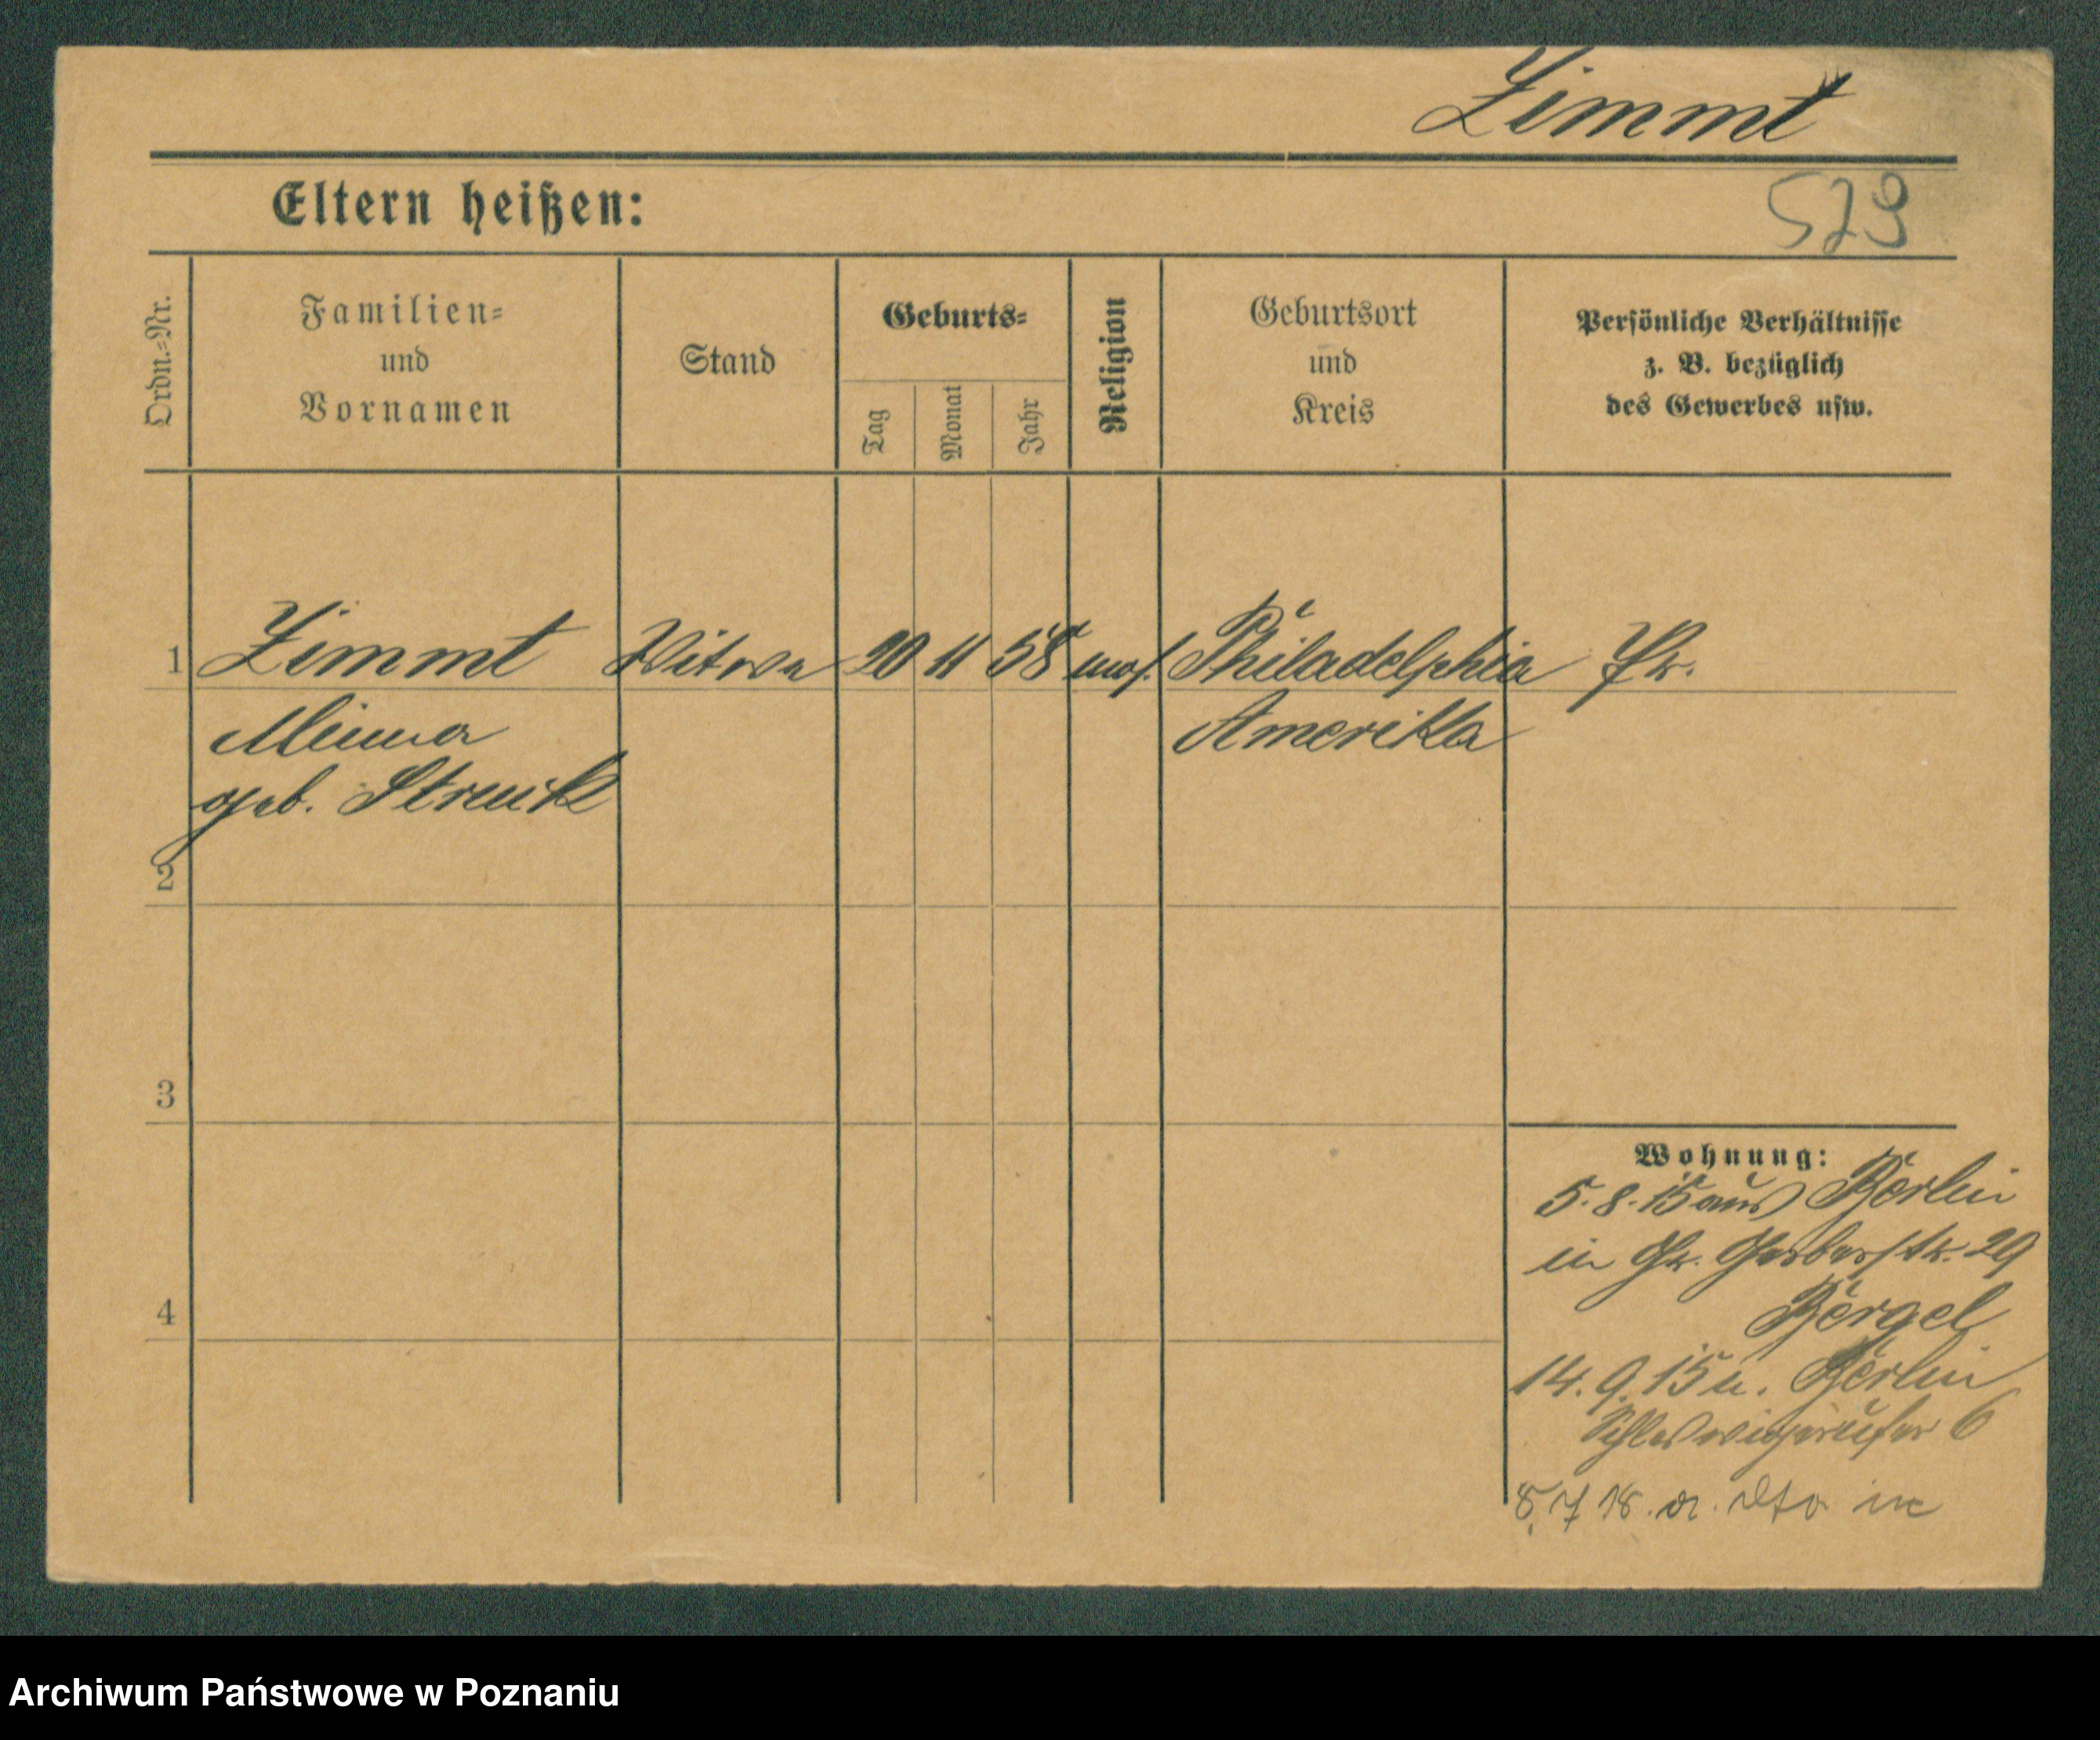 Zimmt
Eltern heißen:
579
Ordn.=Nr.
Familien=
und
Vornamen
Stand
Geburts=
Tag
Monat
Jahr
Religion
Geburtsort
und
Kreis
Persönliche Verhältnisse
z. B. bezüglich
des Gewerbes usw.
1 Zimmt Witwe 20 11 58 mos. Philadelphia
Minna Amerika
geb.
2
3
4
Wohnung:
5.8.15 aus Berlin
in Gr. Gerberstr. 29
Bergel
14.9.15 n. Berlin
Schleswigerufer 6
8.7 18. in
Archiwum Państwowe w Poznaniu